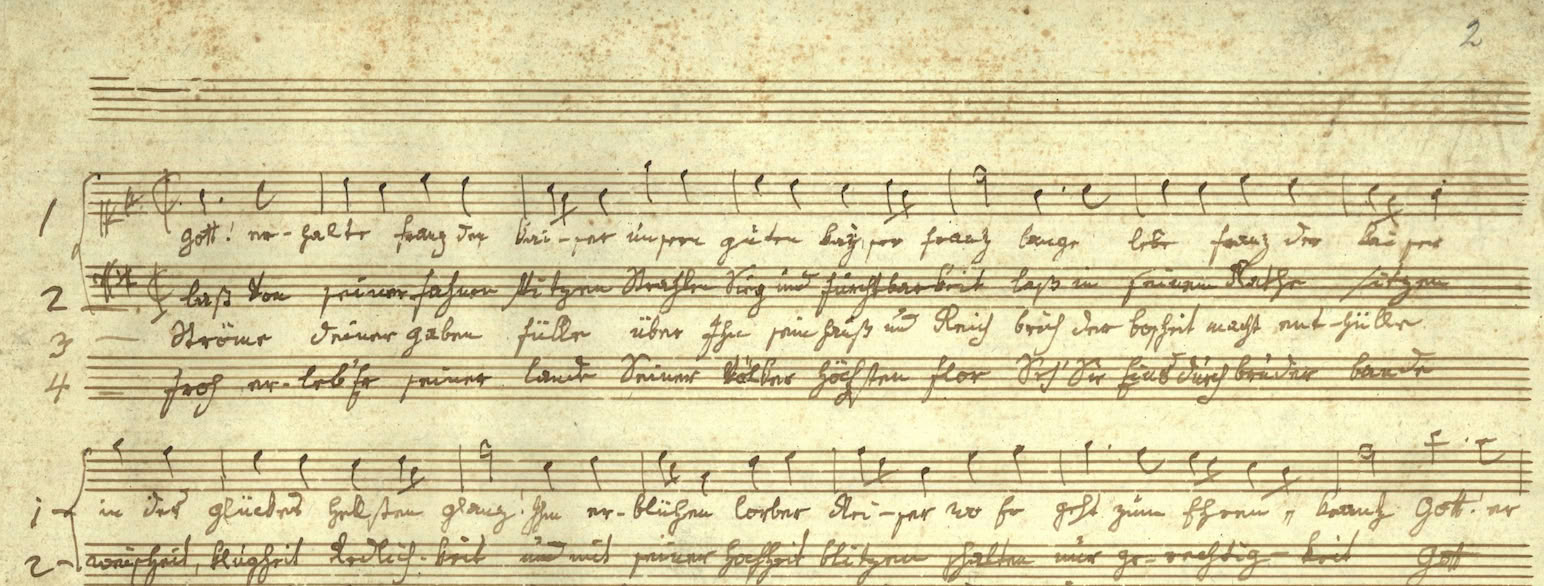 2
1 gott! er-halte franz den kai-ser unsern guten kaiser franz lange lebe franz der kaiser
2 laß von seiner fahnen spitzen Strahlen Sieg und furchtbarkeit laß in seinem Rathe sitzen
3 Ströme deiner gaben fülle über Ihn sein hauß und Reich brich der bosheit macht ent-hülle
4 froh er-leb' Er seiner lande Seiner Völker höchsten flor Seh' Sie Eins durch brüder bande
1 in des glückes hellsten glanz! Ihm er-blühen lorber Rei-ser wo Er geht zum Ehren kranz Gott! er
2 weisheit, klugheit Redlich-keit und mit seiner hochheit blitzen schalten nur ge-rechtig-keit Gott